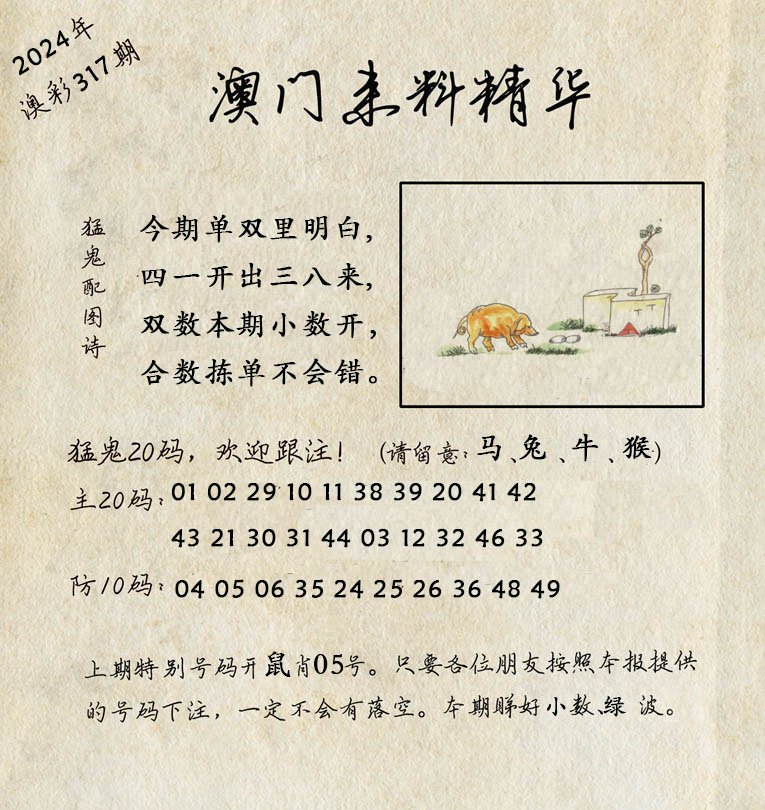 2024年
澳彩317期
澳门来料精华
猛鬼配图诗
今期单双里明白，
四一开出三八来，
双数本期小数开，
合数拣单不会错。
猛鬼20码，欢迎跟注！（请留意：马、兔、牛、猴）
主20码：01 02 29 10 11 38 39 20 41 42
43 21 30 31 44 03 12 32 46 33
防10码：04 05 06 35 24 25 26 36 48 49
上期特别号码开鼠肖05号。只要各位朋友按照本报提供
的号码下注，一定不会有落空。本期睇好小数、绿 波。